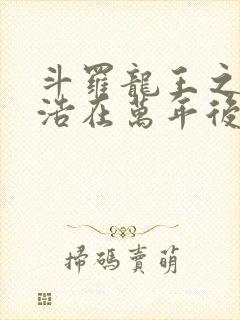 斗羅龍王之
浩在萬年後
掃碼賣萌